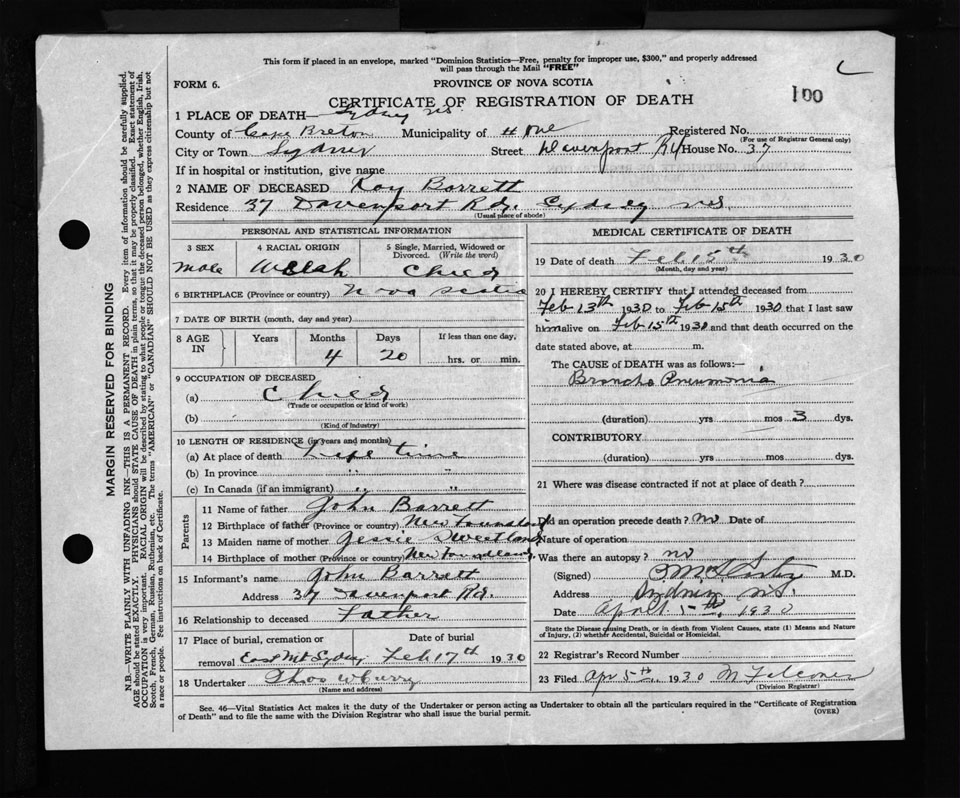 This form if placed in an envelope, marked "Dominion Statistics—Free, penalty for improper use, $300," and properly addressed
will pass through the Mail "FREE"
FORM 6.
PROVINCE OF NOVA SCOTIA
CERTIFICATE OF REGISTRATION OF DEATH
100
1 PLACE OF DEATH— Sydney NS
County of Cape Breton Municipality of # One Registered No.
(For use of Registrar General only)
City or Town Sydney Street Davenport Rd House No. 37
If in hospital or institution, give name
2 NAME OF DECEASED Roy Barrett
Residence 37 Davenport Rd. Sydney NS.
(Usual place of abode)
PERSONAL AND STATISTICAL INFORMATION
3 SEX 4 RACIAL ORIGIN 5 Single, Married, Widowed or Divorced. (Write the word)
Male Welsh Child
6 BIRTHPLACE (Province or country) Nova Scotia
7 DATE OF BIRTH (month, day and year)
8 AGE IN Years Months Days If less than one day,
4 20 hrs. or min.
9 OCCUPATION OF DECEASED
(a) Child
(Trade or occupation or kind of work)
(b)
(Kind of Industry)
10 LENGTH OF RESIDENCE (in years and months)
(a) At place of death Life time
(b) In province " "
(c) In Canada (if an immigrant) " "
Parents
11 Name of father John Barrett
12 Birthplace of father (Province or country) New Foundland
13 Maiden name of mother Jessie Sweetland
14 Birthplace of mother (Province or country) New Foundland
15 Informant's name John Barrett
Address 37 Davenport Rd.
16 Relationship to deceased Father
17 Place of burial, cremation or removal Date of burial
East Mt Sydney Feb 17th 1930
18 Undertaker Thos W Curry
(Name and address)
MEDICAL CERTIFICATE OF DEATH
19 Date of death Feb 15th 1930
(Month, day and year)
20 I HEREBY CERTIFY that I attended deceased from
Feb 13th 1930 to Feb 15th 1930 that I last saw
him alive on Feb 15th 1930 and that death occurred on the
date stated above, at m.
The CAUSE OF DEATH was as follows:—
Broncho Pneumonia
(duration) yrs mos 3 dys.
CONTRIBUTORY
(duration) yrs. mos. dys.
21 Where was disease contracted if not at place of death?
Did an operation precede death? No Date of
Nature of operation
Was there an autopsy? no
(Signed) M.D.
Address Sydney NS.
Date April 5th, 1930
State the Disease causing Death, or in death from Violent Causes, state (1) Means and Nature
of Injury, (2) whether Accidental, Suicidal or Homicidal.
22 Registrar's Record Number
23 Filed Apr 5th 1930 M Falconer
(Division Registrar)
Sec. 46—Vital Statistics Act makes it the duty of the Undertaker or person acting as Undertaker to obtain all the particulars required in the "Certificate of Registration
of Death" and to file the same with the Division Registrar who shall issue the burial permit.
(OVER)
MARGIN RESERVED FOR BINDING
N.B.—WRITE PLAINLY WITH UNFADING INK—THIS IS A PERMANENT RECORD. Every item of information should be carefully supplied.
AGE should be stated EXACTLY. PHYSICIANS should STATE CAUSE OF DEATH in plain terms, so that it may be properly classified. Exact statement of
OCCUPATION is very important. RACIAL ORIGIN will be described by stating to what people or tongue the deceased person belonged, whether English, Irish,
Scotch, French, German, Russian, Ruthenian, etc. The terms "AMERICAN" or "CANADIAN" SHOULD NOT BE USED as they express citizenship but not
a race or people. Fee instructions on back of Certificate.